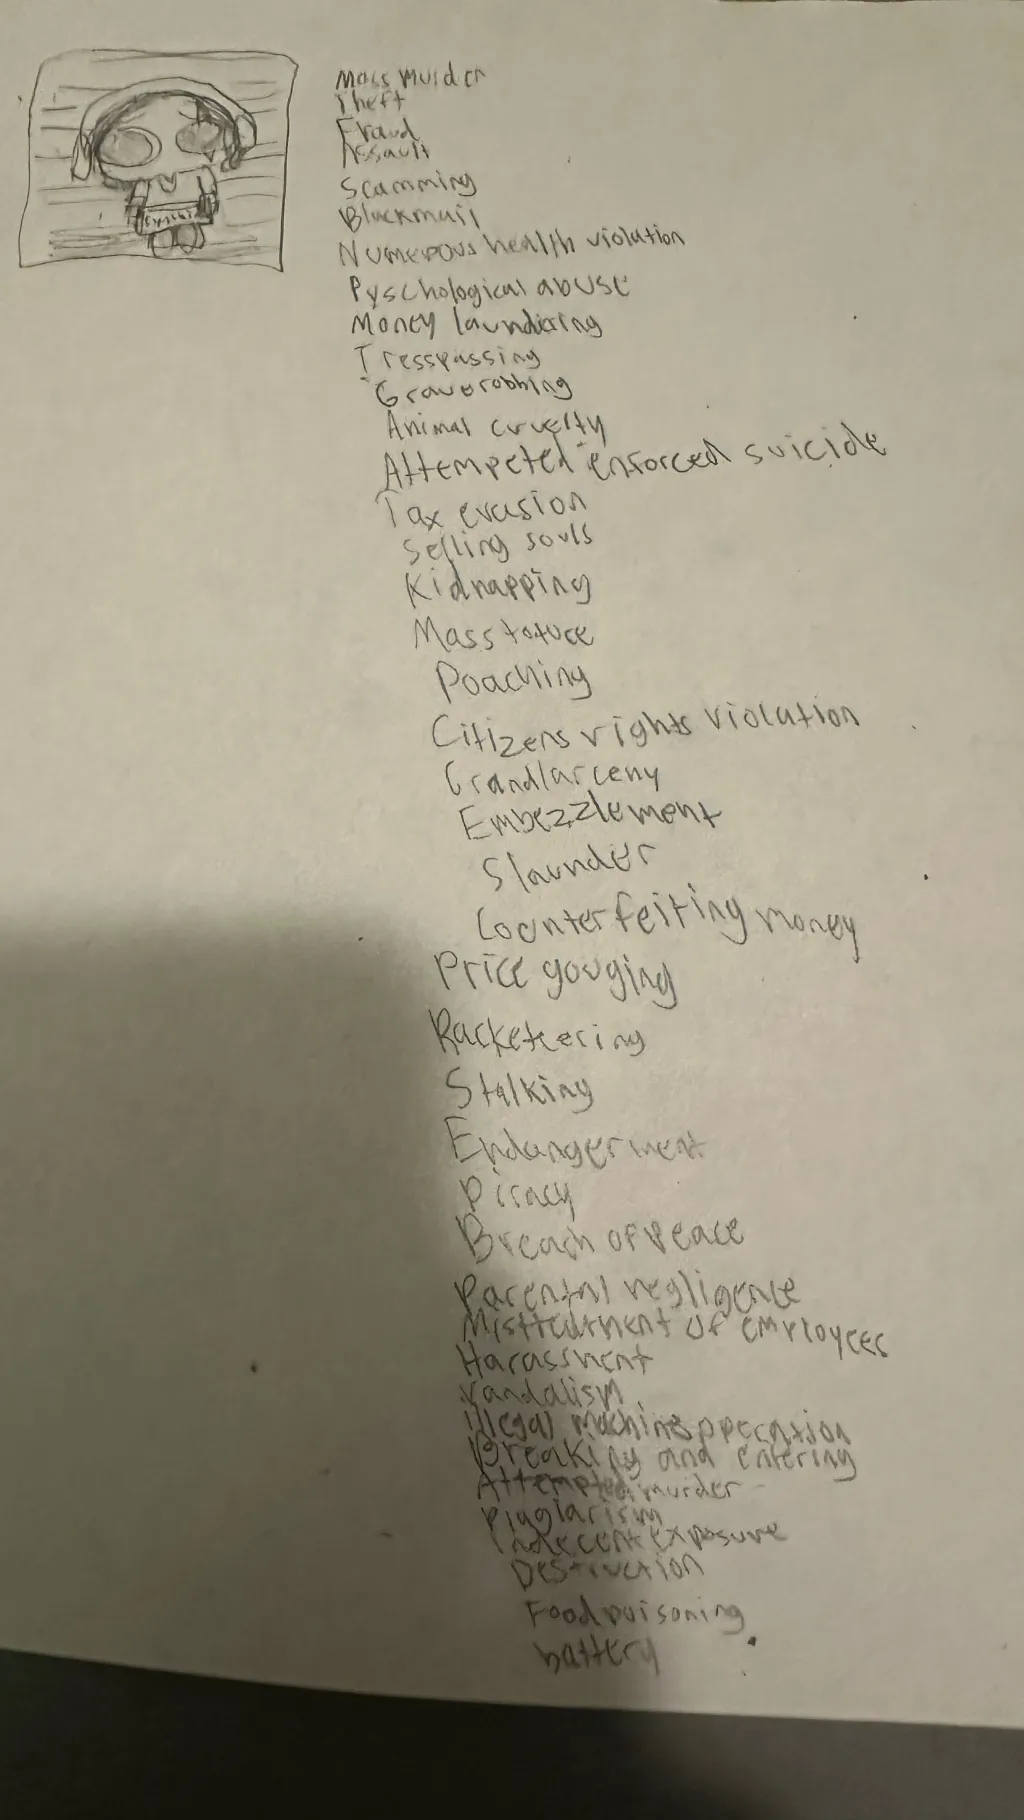 Mass murder
Theft
Fraud
Assault
Scamming
Blackmail
Numerous health violation
Pyschological abuse
Money laundering
Tresspassing
Graverobbing
Animal cruelty
Attempeted enforced suicide
Tax evasion
Selling souls
Kidnapping
Mass totuce
Poaching
Citizens rights violation
Grand larceny
Embezzlement
Slaunder
Counterfeiting money
Price gouging
Racketeering
Stalking
Endangerment
Piracy
Breach of peace
Parental negligence
Mistreatment of employees
Harassment
Vandalism
Illegal machine opperation
Breaking and entering
Attempted murder
Plagiarism
Indecent exposure
Destruction
Food poisoning
battery